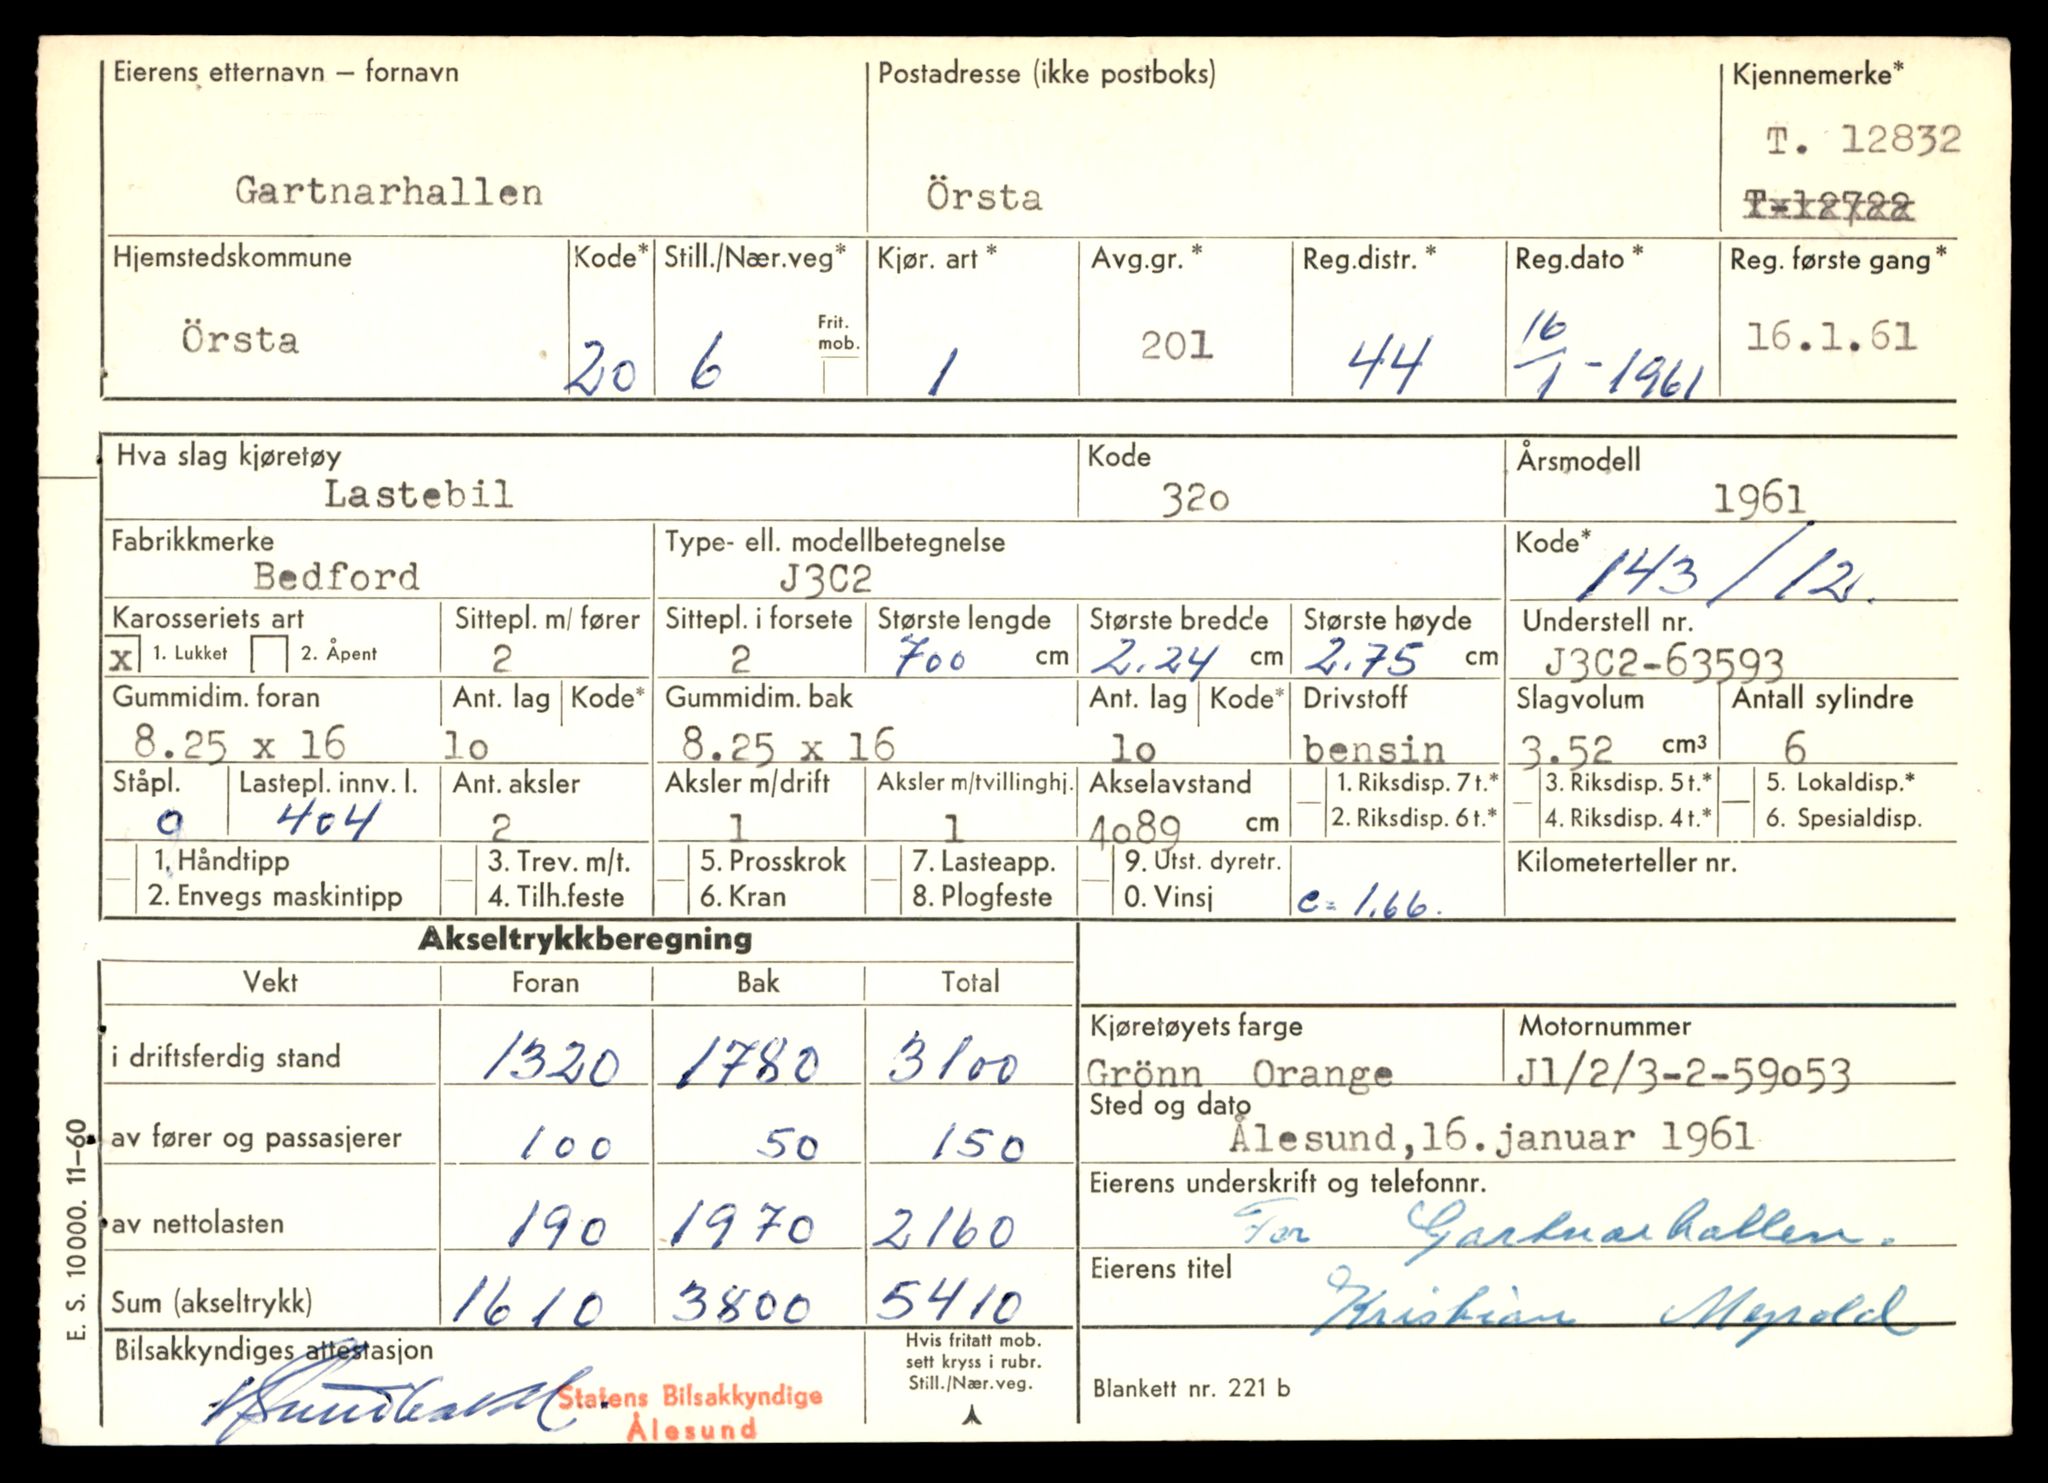 Eierens etternavn – fornavn Postadresse (ikke postboks) Kjennemerke*
T. 12832
Gartnarhallen Örsta T-12722
Hjemstedskommune Kode* Still./Nær.veg* Kjør. art * Avg.gr. * Reg.distr. * Reg.dato * Reg. første gang *
Örsta 20 6 Frit. mob. 1 201 44 16/1-1961 16.1.61
Hva slag kjøretøy Kode Årsmodell
Lastebil 32o 1961
Fabrikkmerke Type- ell. modellbetegnelse Kode*
Bedford J3C2 143/12.
Karosseriets art Sittepl. m/ fører Sittepl. i forsete Største lengde Største bredde Største høyde Understell nr.
x 1. Lukket 2. Åpent 2 2 700 cm 2.24 cm 2.75 cm J3C2-63593
Gummidim. foran Ant. lag Kode* Gummidim. bak Ant. lag Kode* Drivstoff Slagvolum Antall sylindre
8.25 x 16 lo 8.25 x 16 lo bensin 3.52 cm3 6
Ståpl. Lastepl. innv. l. Ant. aksler Aksler m/drift Aksler m/tvillinghj. Akselavstand 1. Riksdisp. 7 t.* 3. Riksdisp. 5 t.* 5. Lokaldisp.*
0 404 2 1 1 4o89 cm 2. Riksdisp. 6 t.* 4. Riksdisp. 4 t.* 6. Spesialdisp.
1. Håndtipp 3. Trev. m/t. 5. Prosskrok 7. Lasteapp. 9. Utst. dyretr. Kilometerteller nr.
2. Envegs maskintipp 4. Tilh.feste 6. Kran 8. Plogfeste 0. Vinsj c= 1.66.
Akseltrykkberegning
Vekt Foran Bak Total
i driftsferdig stand 1320 1780 3100
av fører og passasjerer 100 50 150
av nettolasten 190 1970 2160
Sum (akseltrykk) 1610 3800 5410
Kjøretøyets farge Motornummer
Grönn Orange J1/2/3-2-59o53
Sted og dato
Ålesund,16.januar 1961
Eierens underskrift og telefonnr.
For Gartnarhallen.
Eierens titel
Kristian Myrold
Bilsakkyndiges attestasjon
Statens Bilsakkyndige
Ålesund
Hvis fritatt mob.
sett kryss i rubr.
Still./Nær.veg.
Blankett nr. 221 b
E. S. 10 000. 11–60